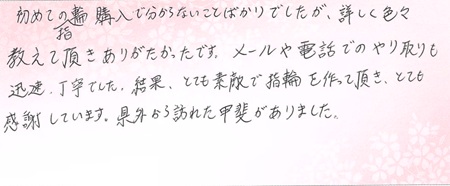 初めての指輪購入で分からないことばかりでしたが、詳しく色々
教えて頂きありがたかったです。メールや電話でのやり取りも
迅速、丁寧でした。結果、とても素敵で指輪を作って頂き、とても
感謝しています。県外から訪れた甲斐がありました。